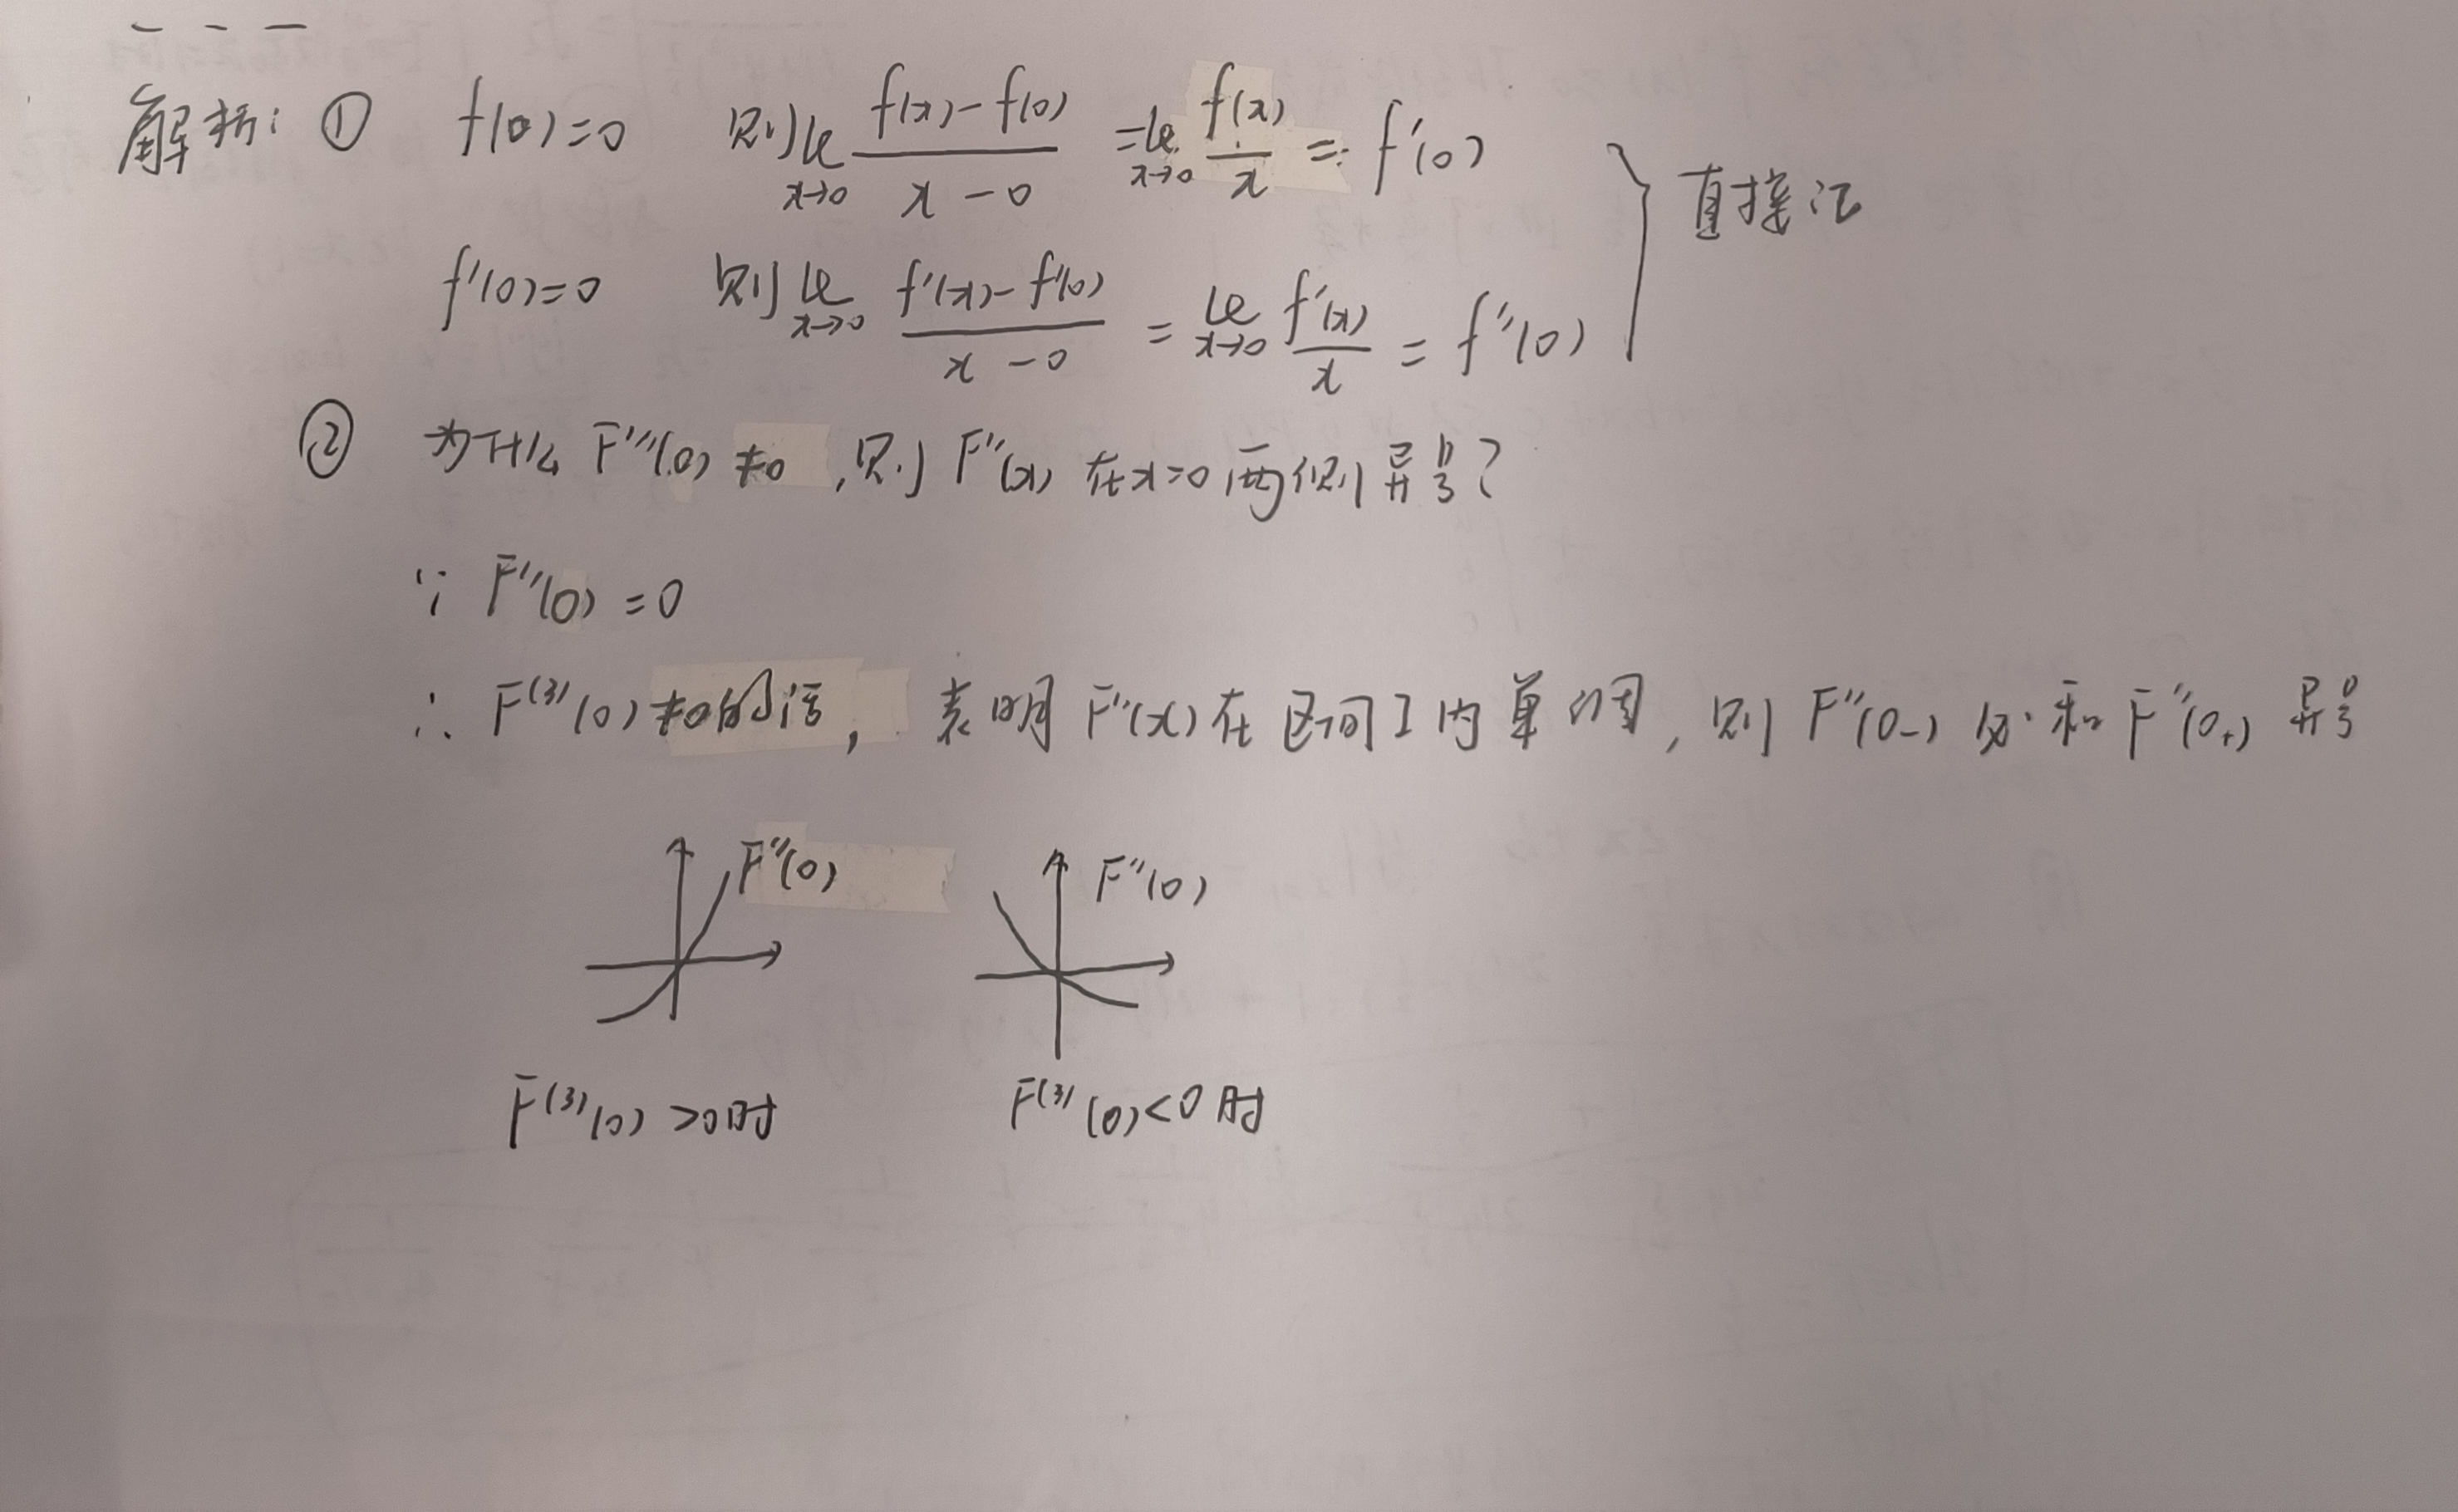 解析: ① f(0)=0 则 lim x→0 f(x)-f(0) / x-0 = lim x→0 f(x)/x = f'(0)
f'(0)=0 则 lim x→0 f'(x)-f'(0) / x-0 = lim x→0 f'(x)/x = f''(0)
} 直接证
② 为什么 F'''(0)≠0, 则 F''(x) 在x=0 两侧异号?
∵ F''(0)=0
∴ F⁽³⁾(0)≠0的话, 表明 F''(x) 在区间I内单调, 则 F''(0₋) 必和 F''(0₊) 异号
F''(0) F''(0)
F⁽³⁾(0)>0时 F⁽³⁾(0)<0时